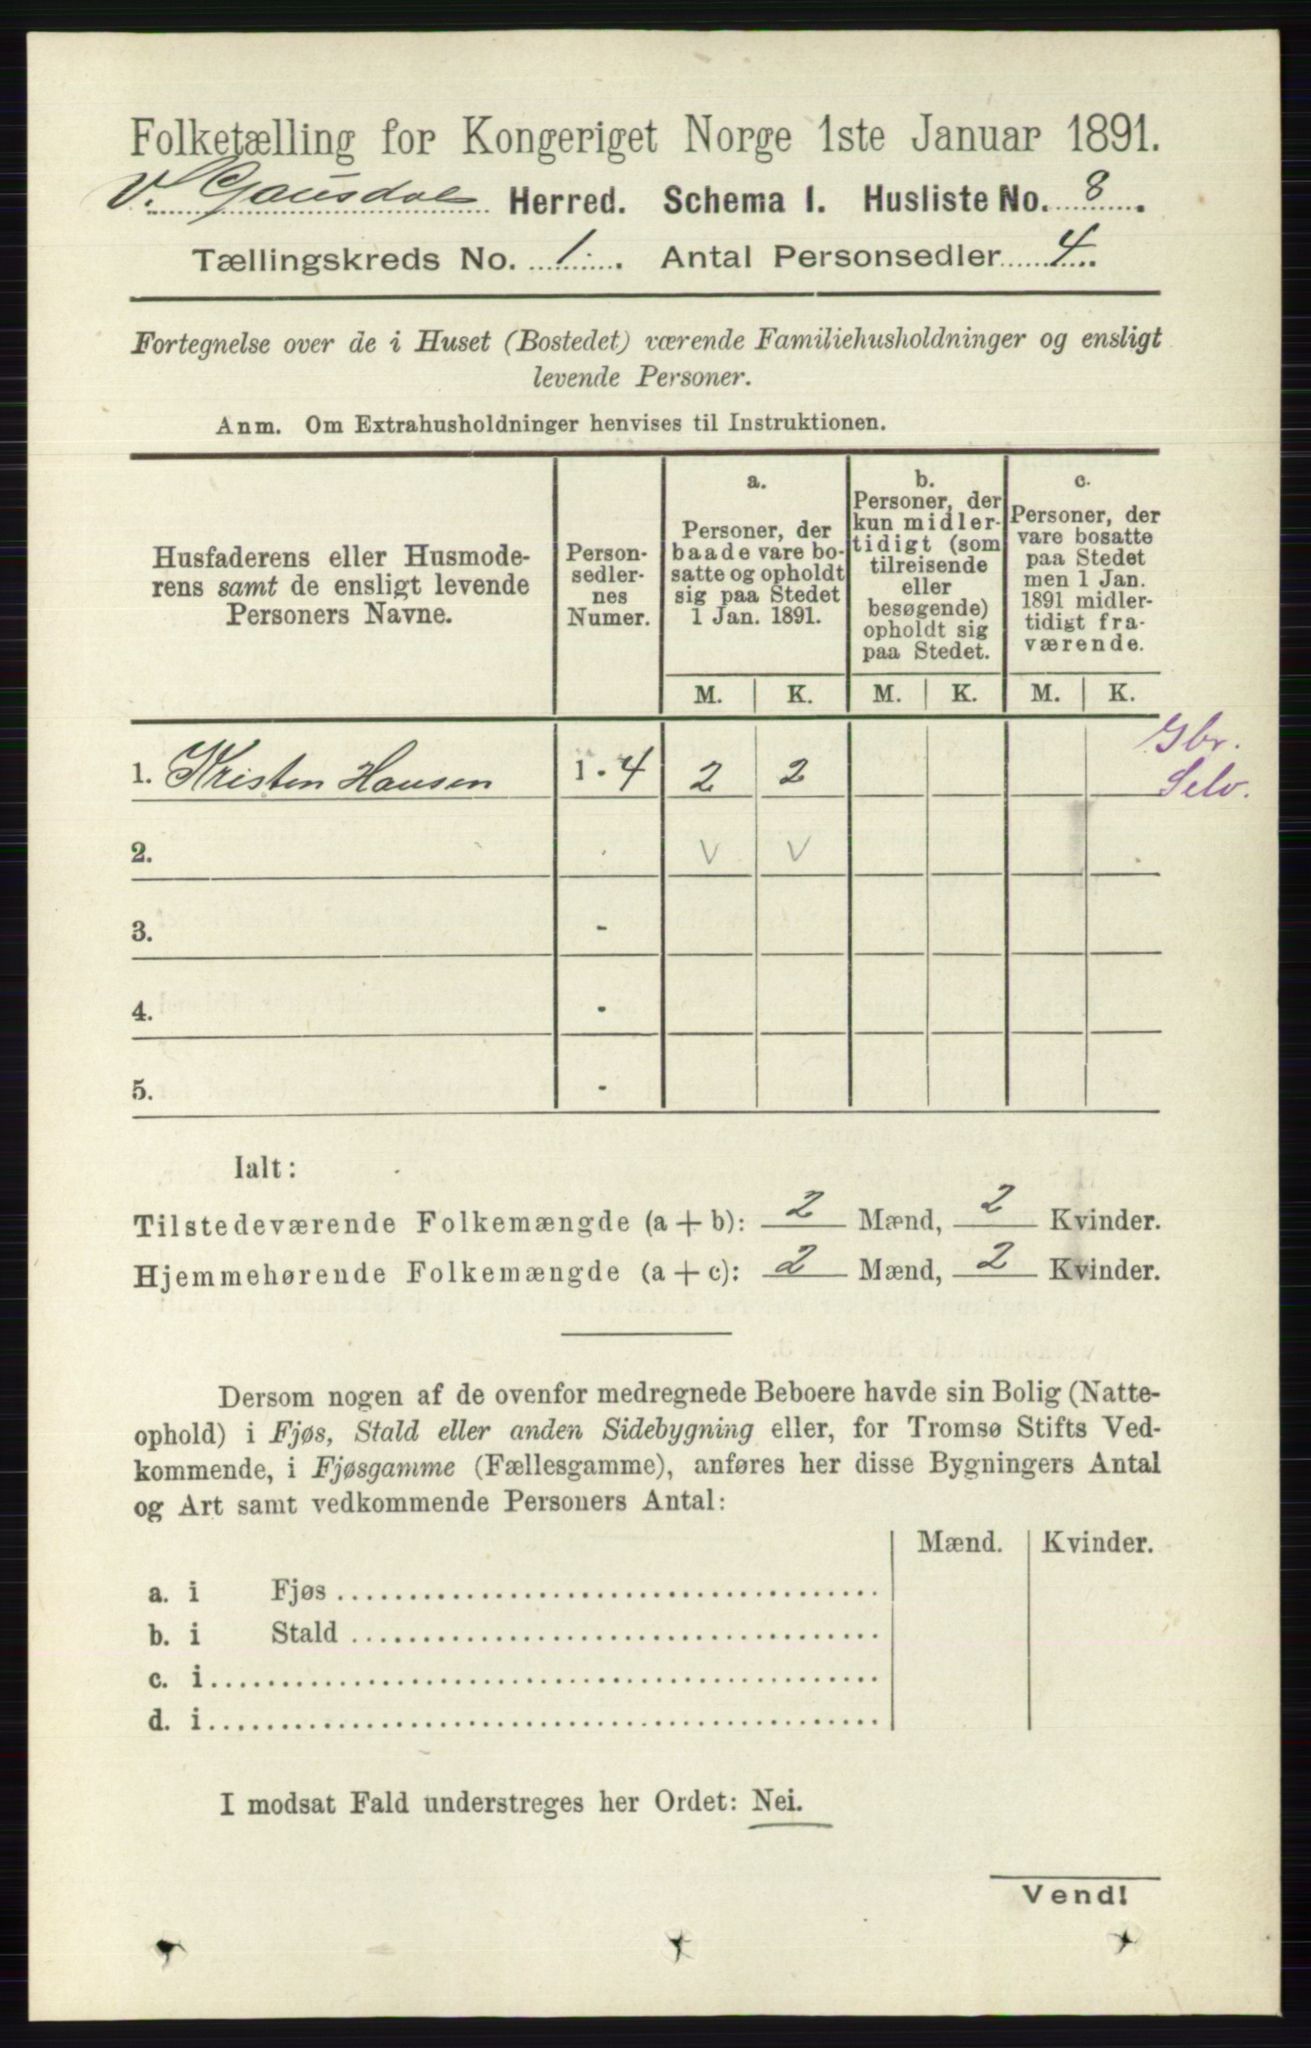 Folketælling for Kongeriget Norge 1ste Januar 1891.
V. Gausdal Herred. Schema I. Husliste No. 8.
Tællingskreds No. 1. Antal Personsedler 4.
Fortegnelse over de i Huset (Bostedet) værende Familiehusholdninger og ensligt
levende Personer.
Anm. Om Extrahusholdninger henvises til Instruktionen.
Husfaderens eller Husmode-
rens samt de ensligt levende
Personers Navne.
Person-
sedler-
nes
Numer.
a.
Personer, der
baade vare bo-
satte og opholdt
sig paa Stedet
1 Jan. 1891.
b.
Personer, der
kun midler-
tidigt (som
tilreisende
eller
besøgende)
opholdt sig
paa Stedet.
c.
Personer, der
vare bosatte
paa Stedet
men 1 Jan.
1891 midler-
tidigt fra-
værende.
M. K. M. K. M. K.
Gbr.
1. Kristen Hansen 1 - 4 2 2 Selv.
2. - V V
3. -
4. -
5. -
Ialt:
Tilstedeværende Folkemængde (a + b): 2 Mænd, 2 Kvinder.
Hjemmehørende Folkemængde (a + c): 2 Mænd, 2 Kvinder.
Dersom nogen af de ovenfor medregnede Beboere havde sin Bolig (Natte-
ophold) i Fjøs, Stald eller anden Sidebygning eller, for Tromsø Stifts Ved-
kommende, i Fjøsgamme (Fællesgamme), anføres her disse Bygningers Antal
og Art samt vedkommende Personers Antal:
Mænd. Kvinder.
a. i Fjøs
b. i Stald
c. i
d. i
I modsat Fald understreges her Ordet: Nei.
Vend!